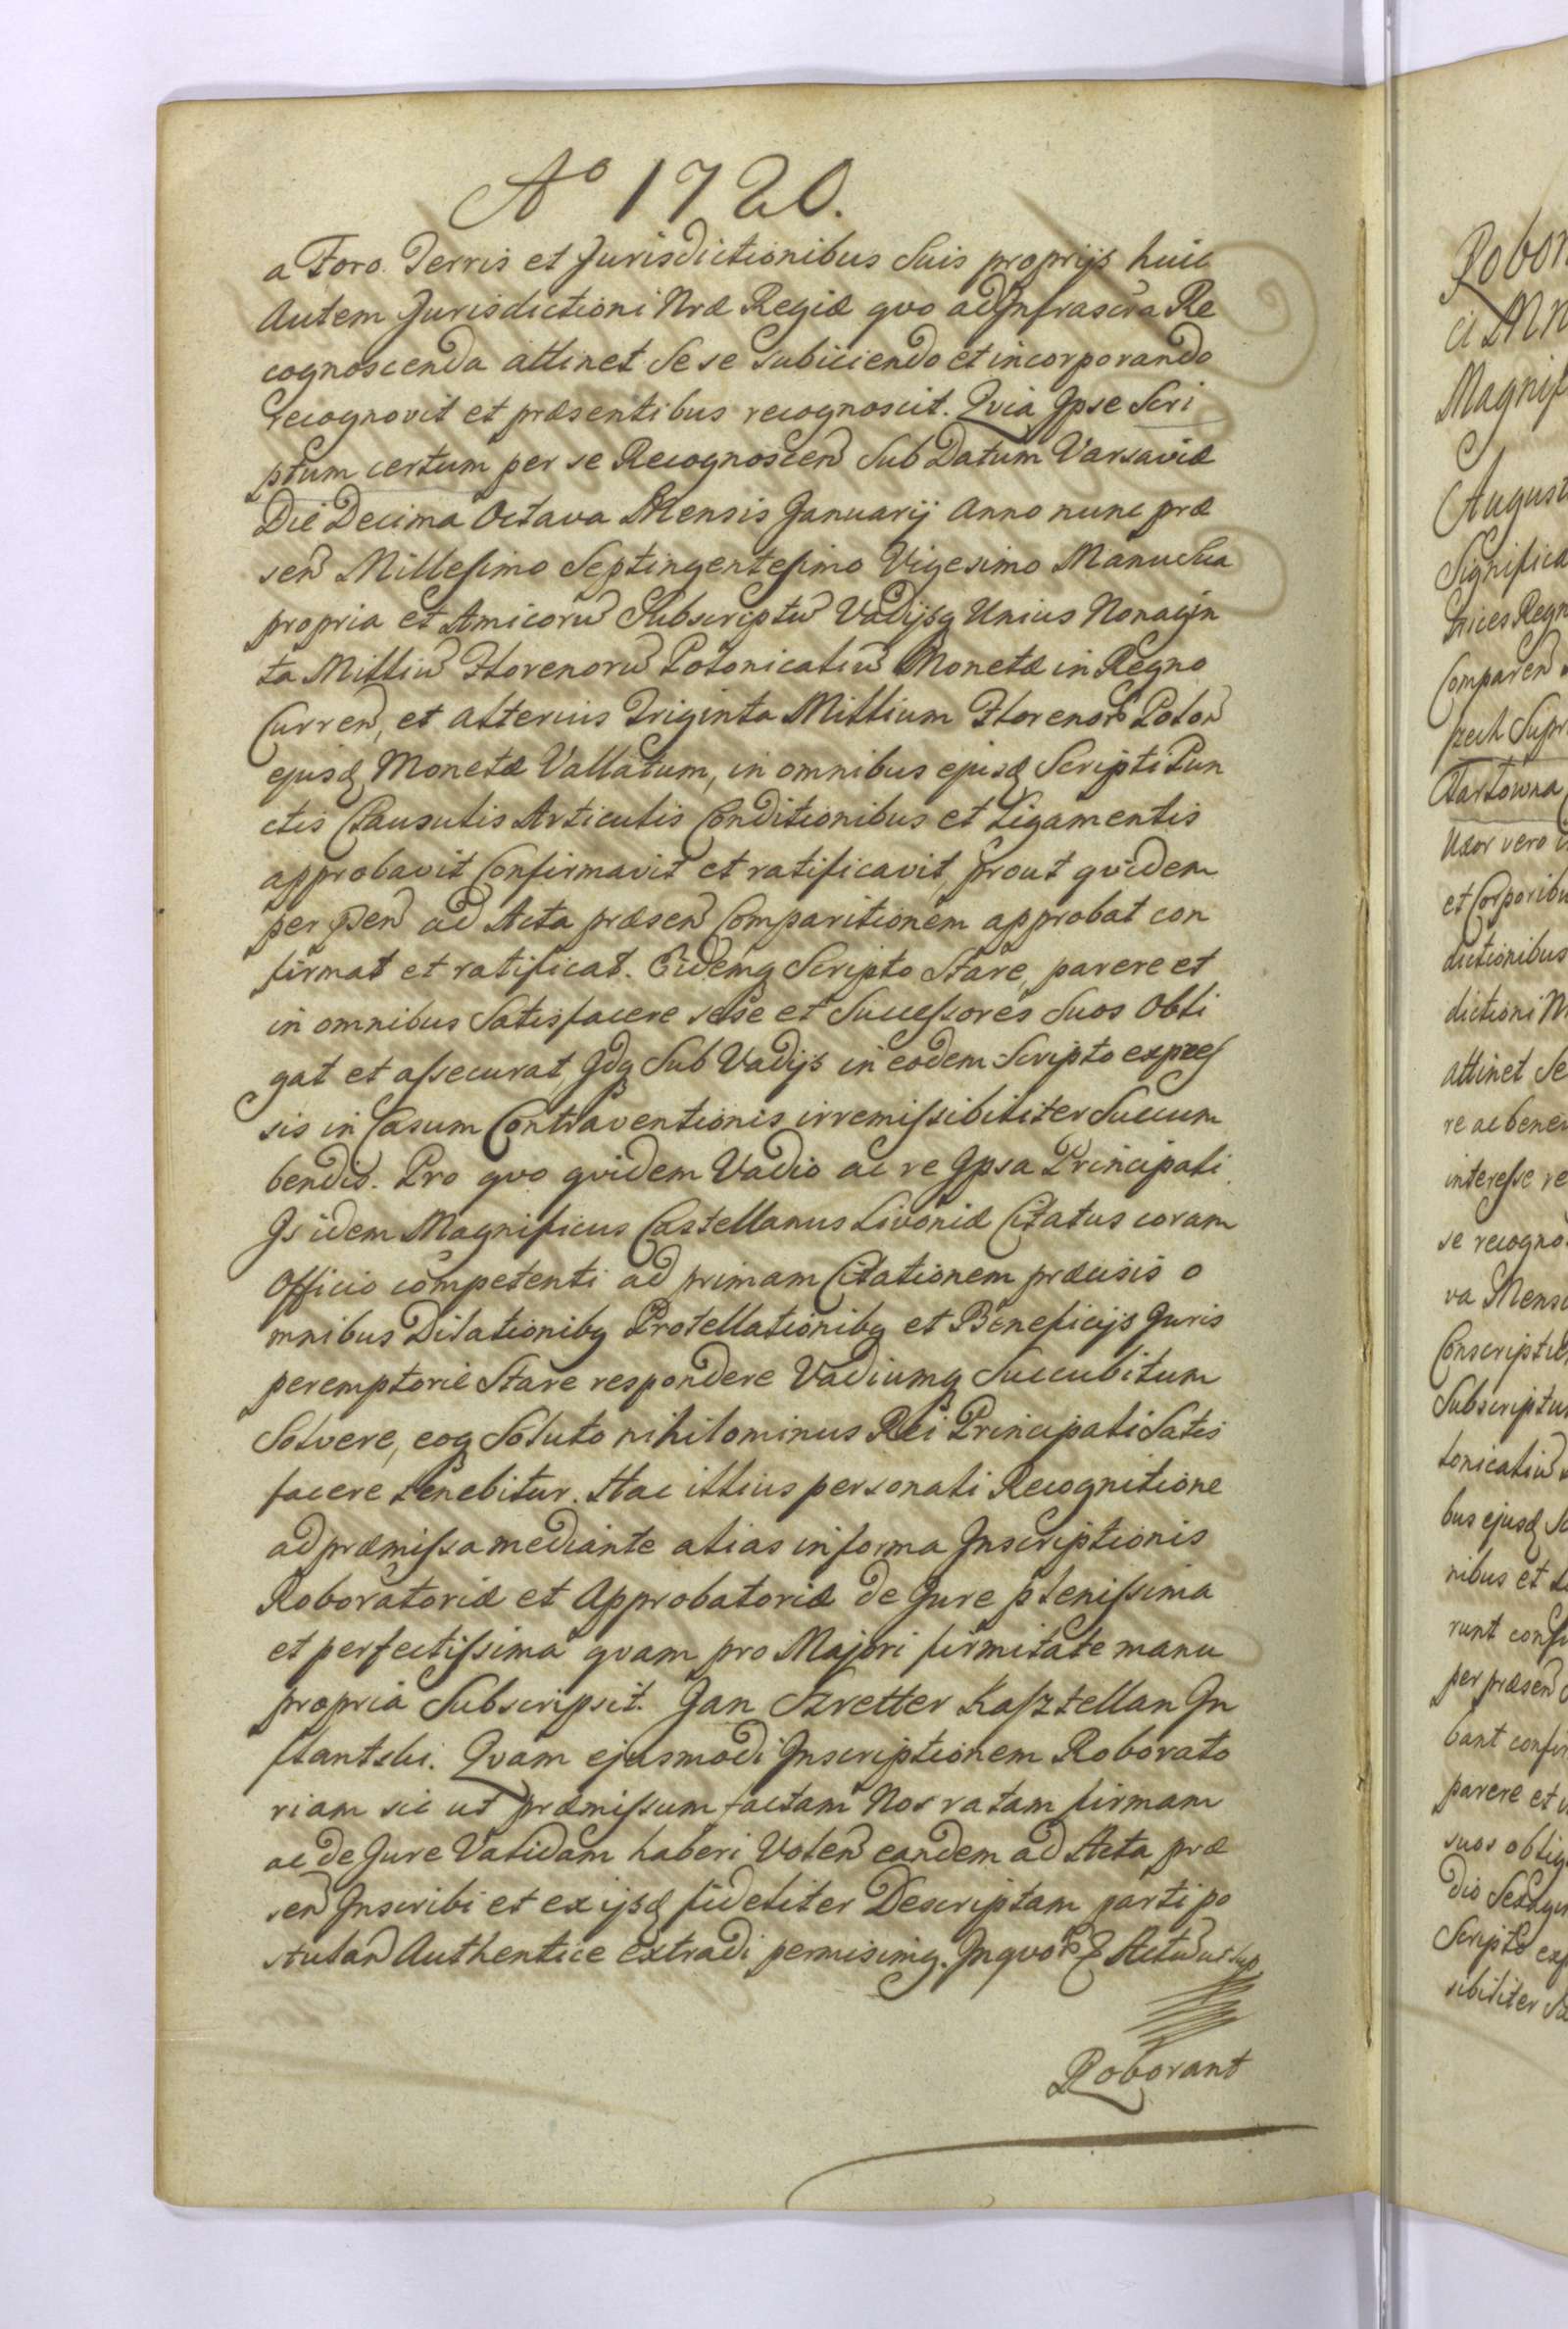 Aº 1720.
a Foro. Terris et Jurisdictionibus Suis proprijs huic
Autem Jurisdictioni Nræ Regiæ qvo ad Infrascra Re
cognoscenda attinet Sese Subiiciendo et incorporando
recognovit et præsentibus recognoscit. Qvia Ipse Scri
ptum certum per se Recognoscen Sub Datum Varsaviæ
Die Decima Octava Mensis Januarij Anno nunc præ
sen Millesimo Septingentesimo Vigesimo Manu Sua
propria et Amicorū Subscriptū Vadijsq Unius Nonagin
ta Milliū Florenorū Polonicaliū Monetæ in Regno
Curren, et alterius Triginta Millium Florenor Polon
ejusd Monetæ Vallatum, in omnibus ejusd Scripti Pun
ctis Clausulis Articulis Conditionibus et Ligamentis
approbavit Confirmavit et ratificavit, prout qvidem
per psen ad Acta præsen Comparitionem approbat con
firmat et ratificat. Eidemq Scripto Stare, parere et
in omnibus Satisfacere sese et Successores Suos Obli
gat et assecurat Idq Sub Vadijs in eodem Scripto expres
sis in Casum Contraventionis irremissibiliter Succum
bendis. Pro qvo qvidem Vadio ac re Ipsa Principali
Is idem Magnificus Castellanus Livoniæ Citatus coram
Officio competenti ad primam Citationem præcisis o
mnibus Dilationibq Protellationibq et Beneficijs Juris
peremptorie Stare respondere Vadiumq Succubitum
Solvere, eoq Soluto nihilominus Rei Principali Satis
facere tenebitur. Hac illius personali Recognitione
ad præmissa mediante alias in forma Inscriptionis
Roboratoriæ et Approbatoriæ de Jure plenissima
et perfectissima qvam pro Majori firmitate manu
propria Subscripsit. Jan Szretter Kasztellan In
flantski. Qvam ejusmodi Inscriptionem Roborato
riam sic ut præmissum factam Nos ratam firmam
ac de Jure Validam haberi Volen eandem ad Acta præ
sen Inscribi et ex ijsd fideliter Descriptam parti po
stulan Authentice extradi permisimq. Inqvor & Actū ut sup
Roborant
Robor
ci MN
Magnif
August
Significa
trices Regn
Comparen
szech Supr
Czartowna
Uxor vero
et Corporibu
dictionibus
dictioni N
attinet Se
re ac bene
interesse re
se recogno
va Mensi
Conscriptu
Subscriptu
lonicaliū
bus ejusd Sc
nibus et L
runt confi
per præsen
bant confir
parere et
suos oblig
dio Sexagin
Scripto exp
sibiliter Su